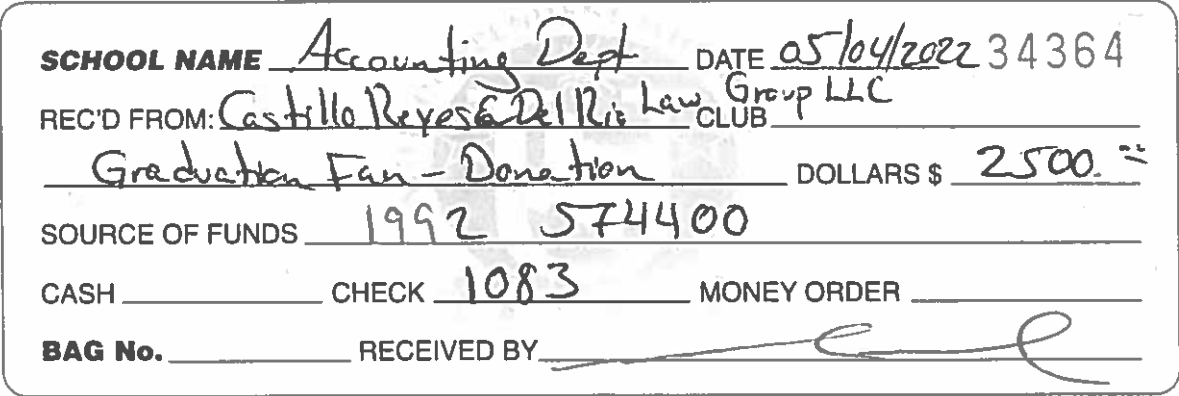 SCHOOL NAME Accounting Dept DATE 05/04/2022 34364
REC'D FROM: Castillo Reyes & Del Rio Law Group LLC CLUB
Graduation Fan - Donation DOLLARS $ 2500.00
SOURCE OF FUNDS 1992 574400
CASH CHECK 1083 MONEY ORDER
BAG No. RECEIVED BY